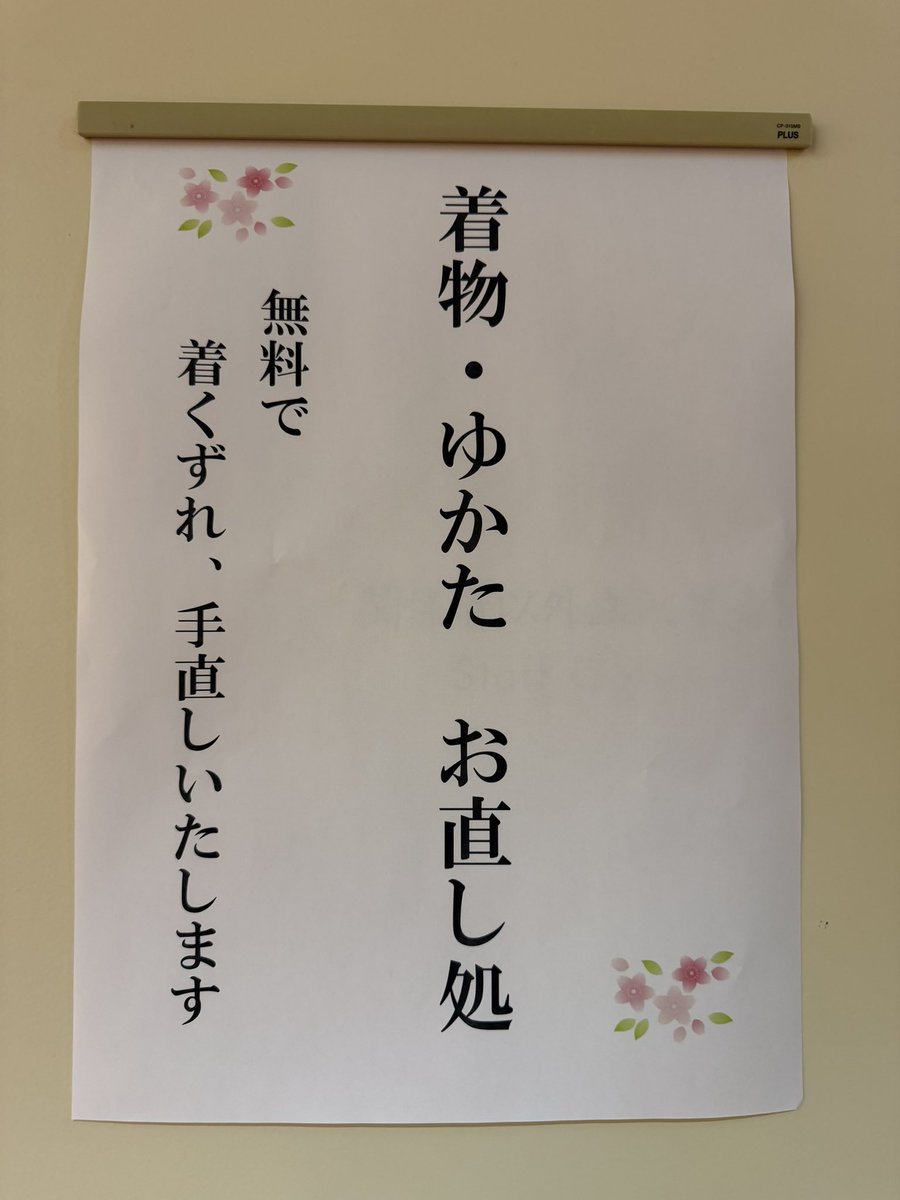 着物・ゆかた　お直し処
無料で
着くずれ、手直しいたします
CP-315MB
PLUS